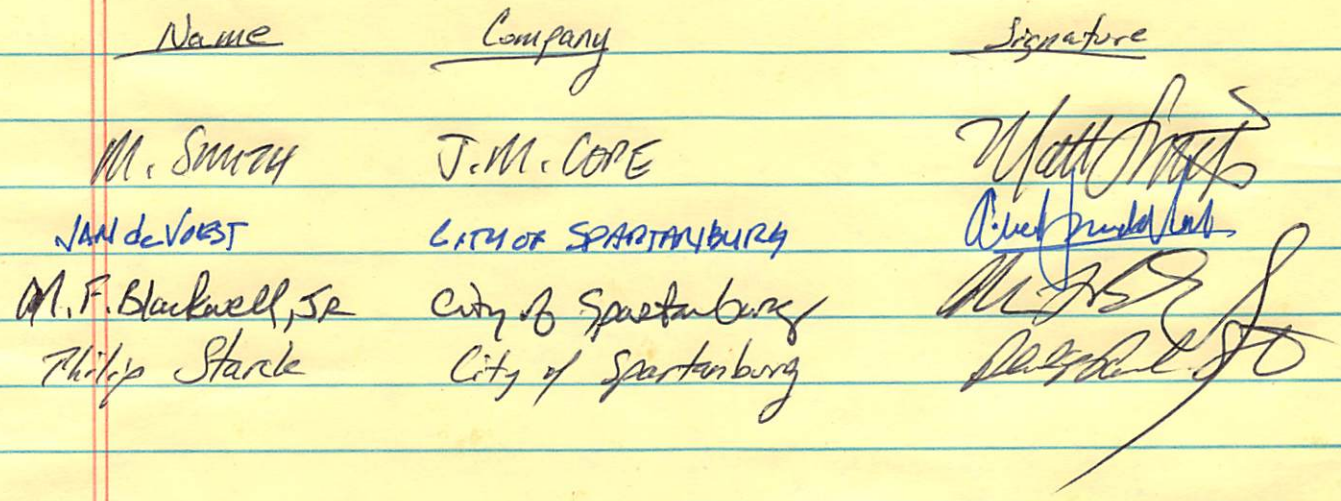 Name Company Signature
M. SMITH J.M. COPE Matt Smith
JAN de VORST CITY OF SPARTANBURG
M.F. Blackwell, JR City of Spartanburg
Philip Starck City of Spartanburg